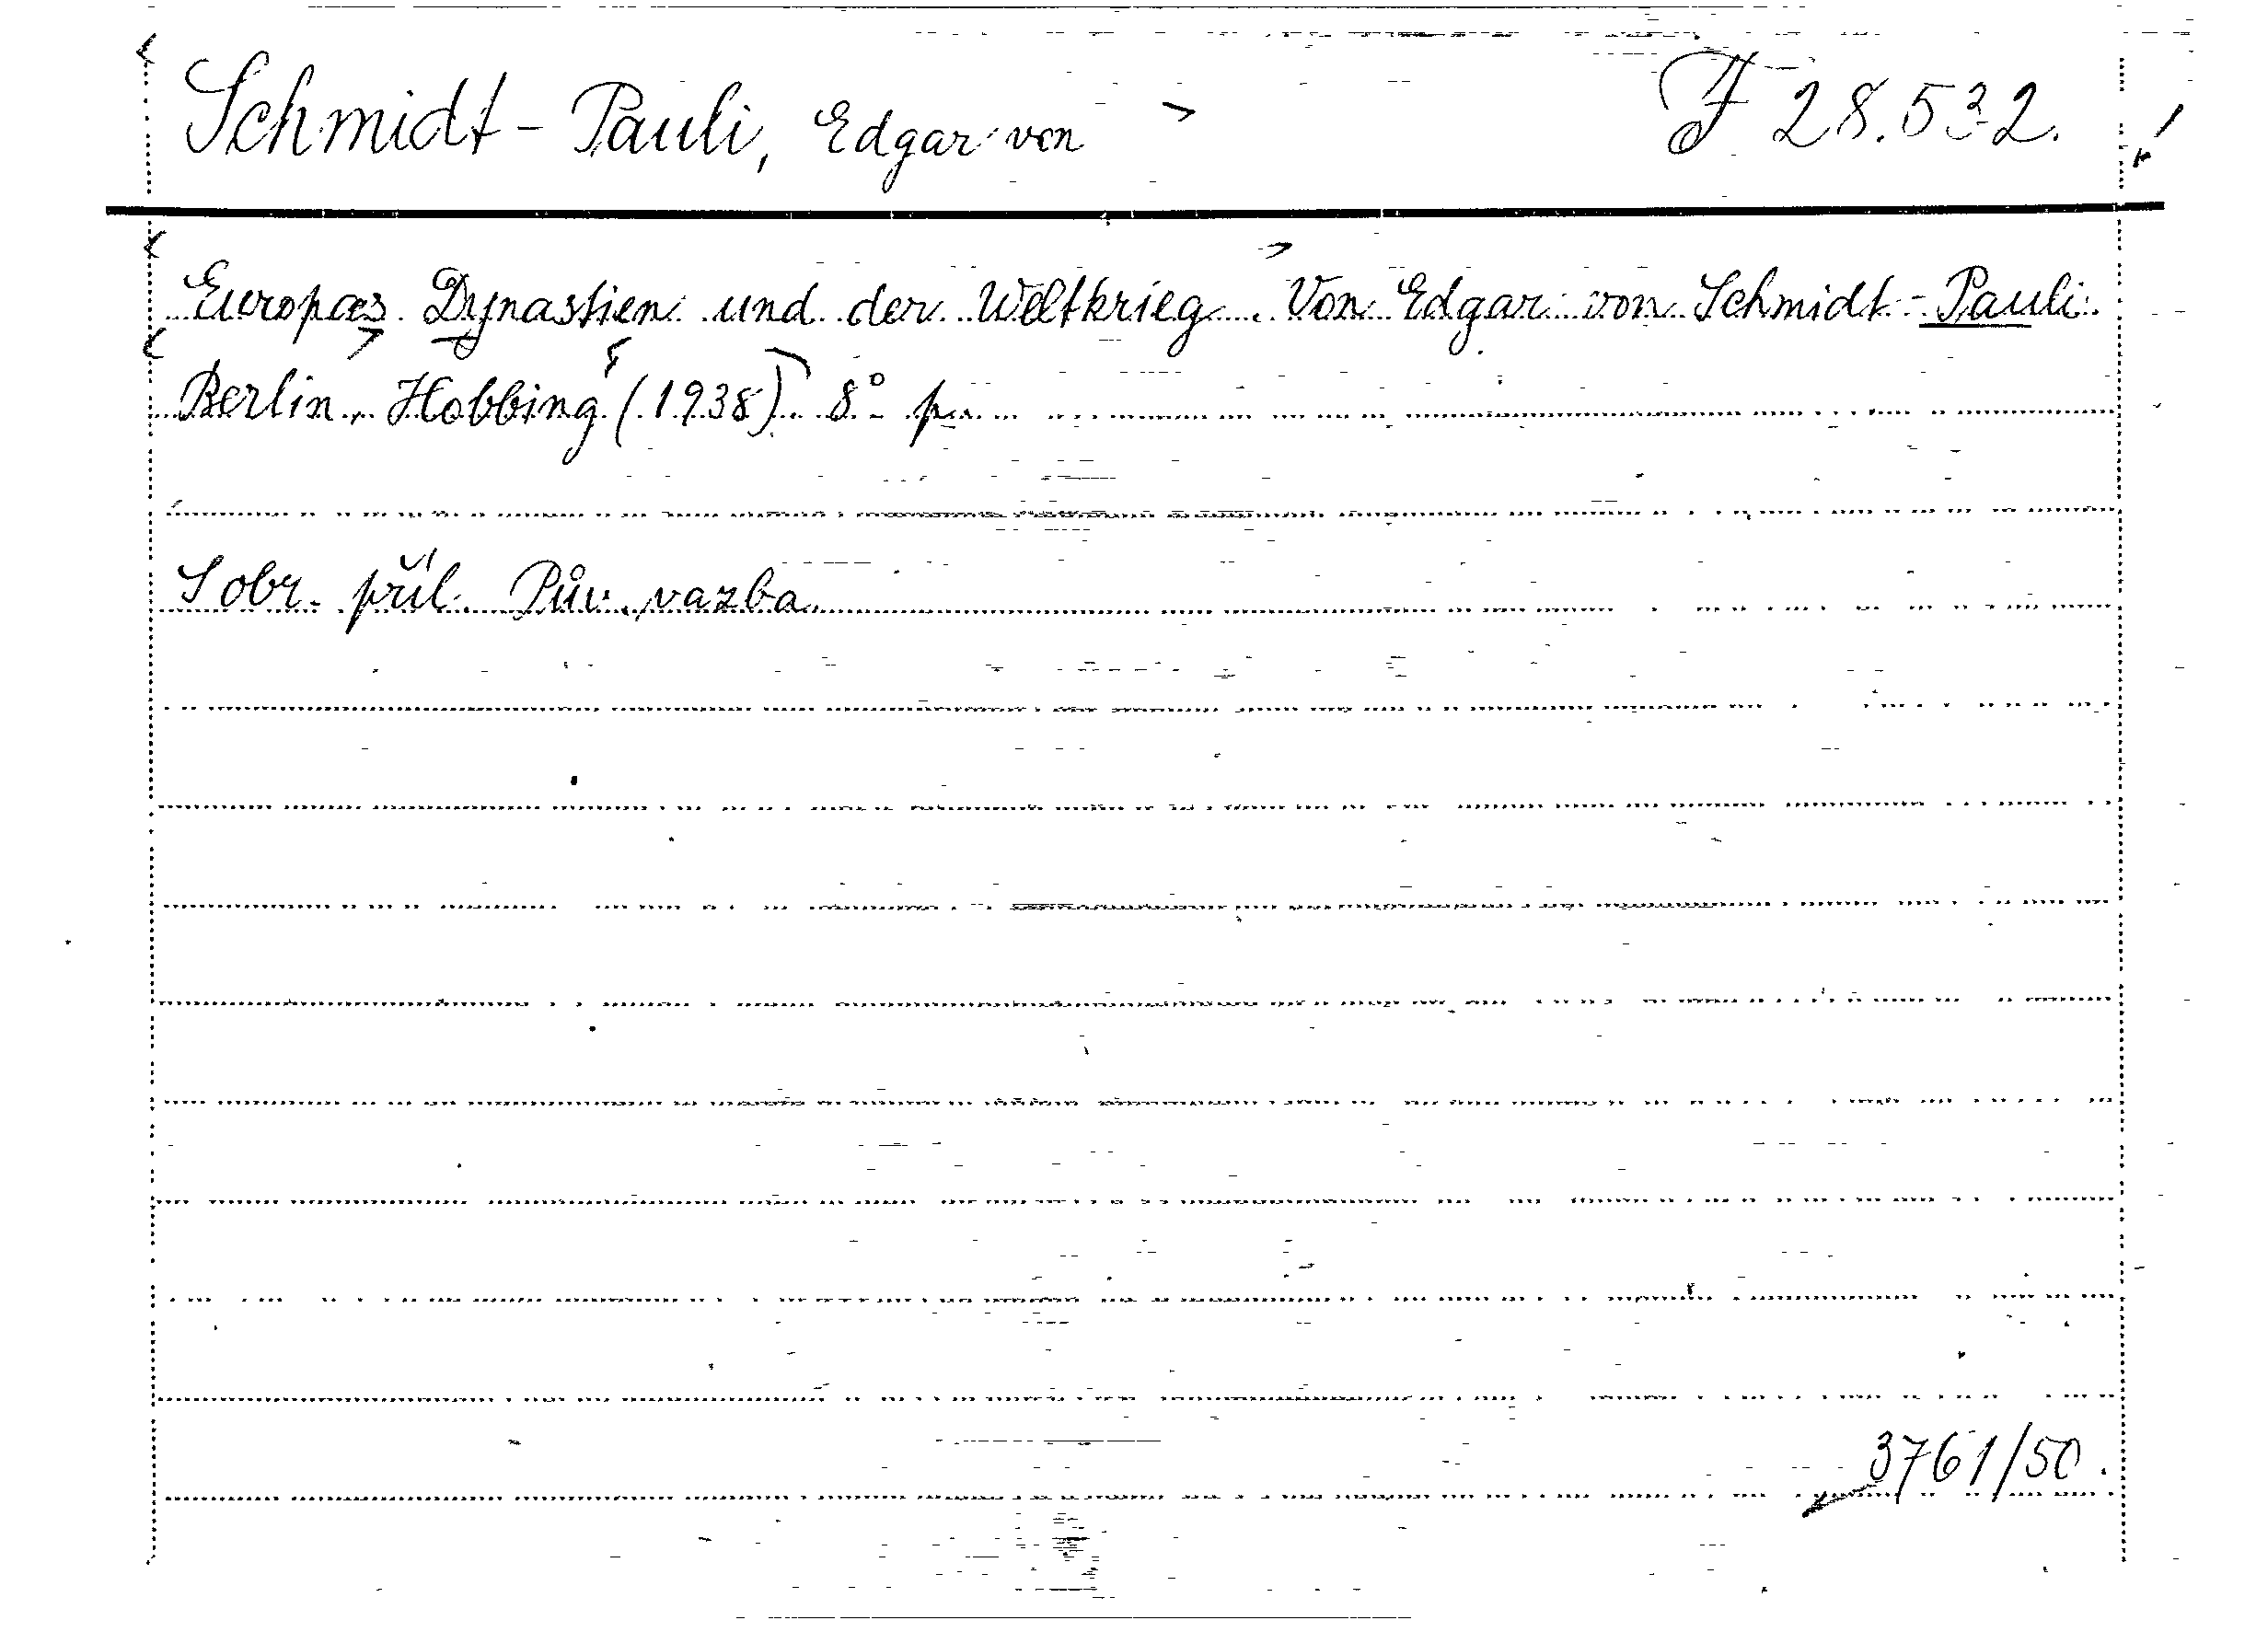 Schmidt-Pauli, Edgar von F 28.532.
Europas Dynastien und der Weltkrieg. Von Edgar von Schmidt-Pauli.
Berlin, Hobbing (1938). 8° p.
S obr. příl. Pův. vazba.
3761/50.